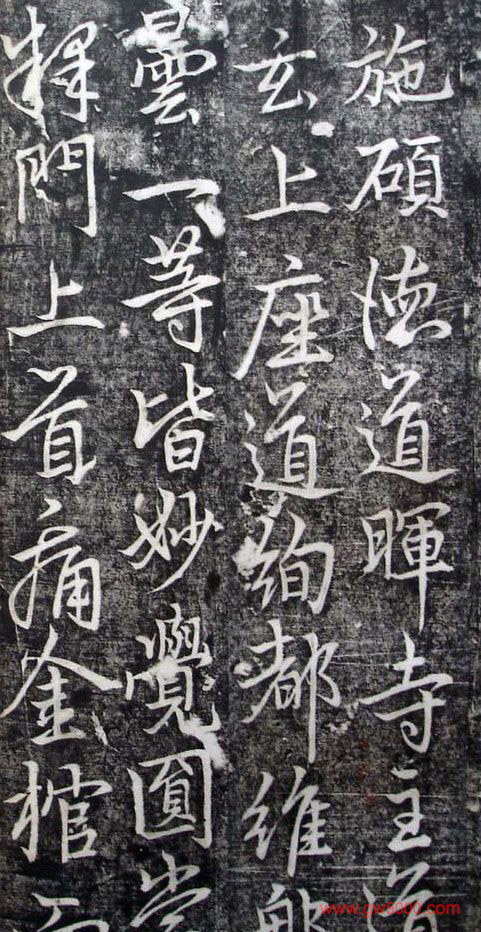 施碩德道暉寺主道
玄上座道絢都維那
曇一等皆妙覺圓
釋門上首痛金棺